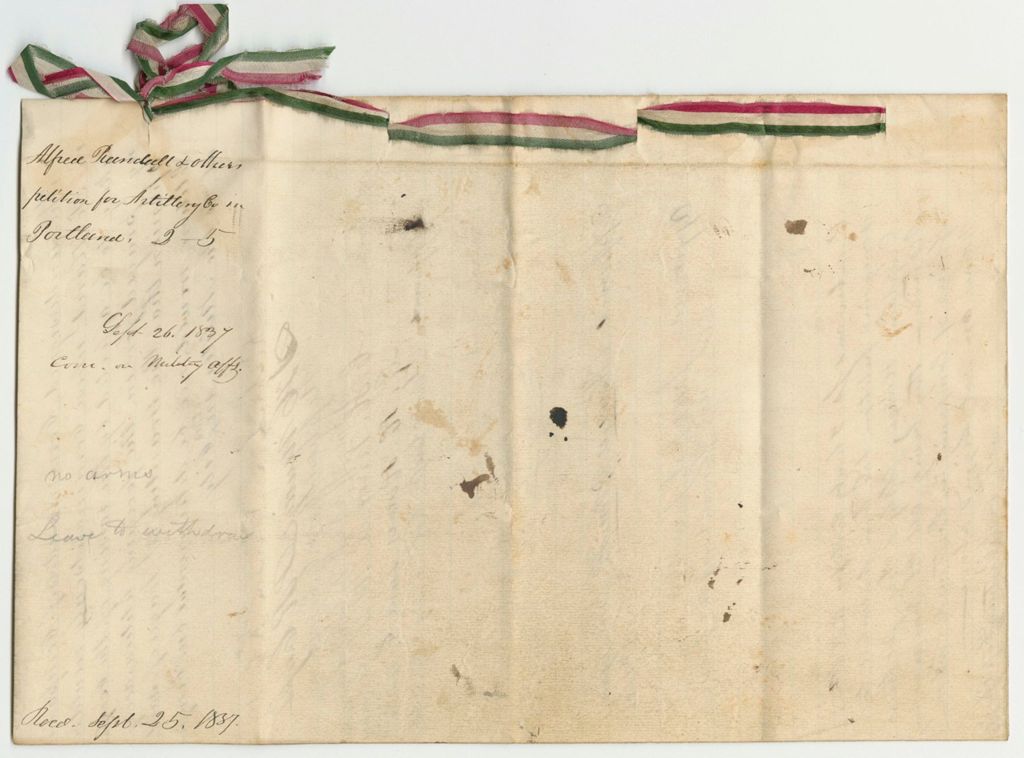 Alfred Randall & others
petition for Artillery Co in
Portland. 2 - 5
Sept 26. 1837
Com. on Military Affs.
no arms
Leave to withdraw
Recd. Sept. 25. 1837.